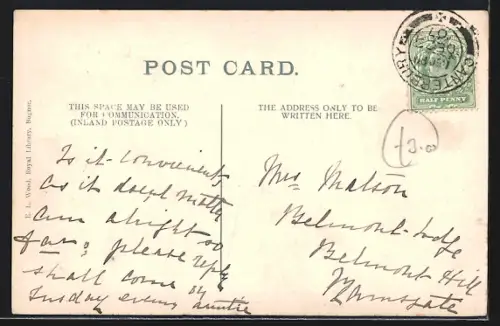 POST CARD.
THIS SPACE MAY BE USED
FOR COMMUNICATION.
(INLAND POSTAGE ONLY)
THE ADDRESS ONLY TO BE
WRITTEN HERE.
Is it convenient
as it doesnt matter
am alright so
far, please reply
shall come by
Tuesday evens auntie
Mrs Matson
Belmont Lodge
Belmont Hill
Ramsgate
E. L. Wood, Royal Library, Bognor.
CANTERBURY
HALF PENNY